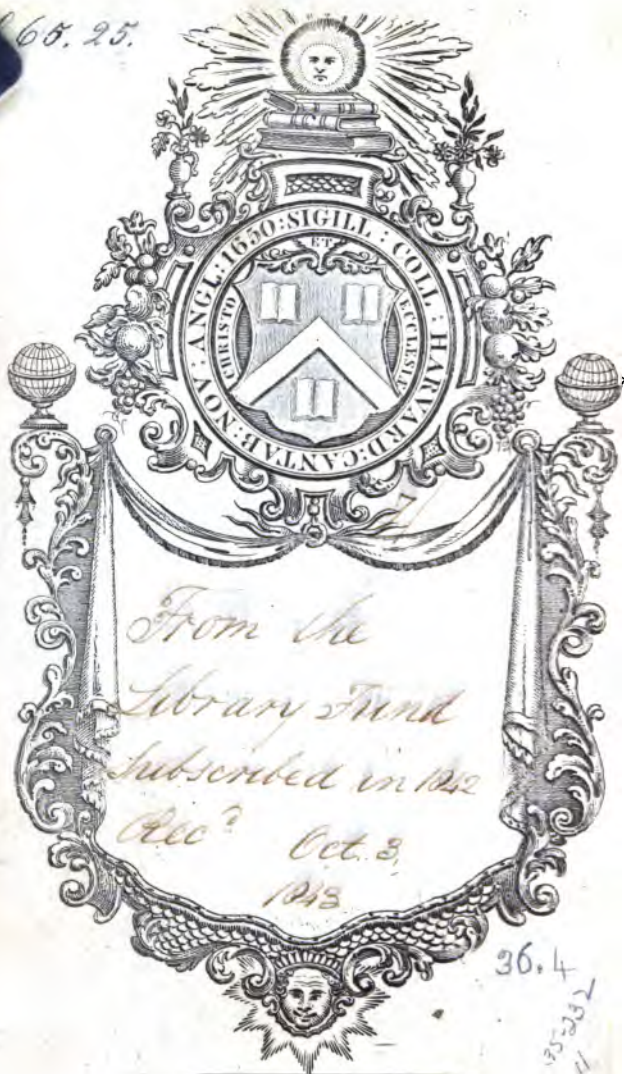 65. 25.
SIGILL : COLL : HARVARD : CANTAB : NOV : ANGL : 1650 :
CHRISTO ET ECCLESIÆ
From the
Library Fund
Subscribed in 1842
Rec^d Oct. 3.
1843
36.4